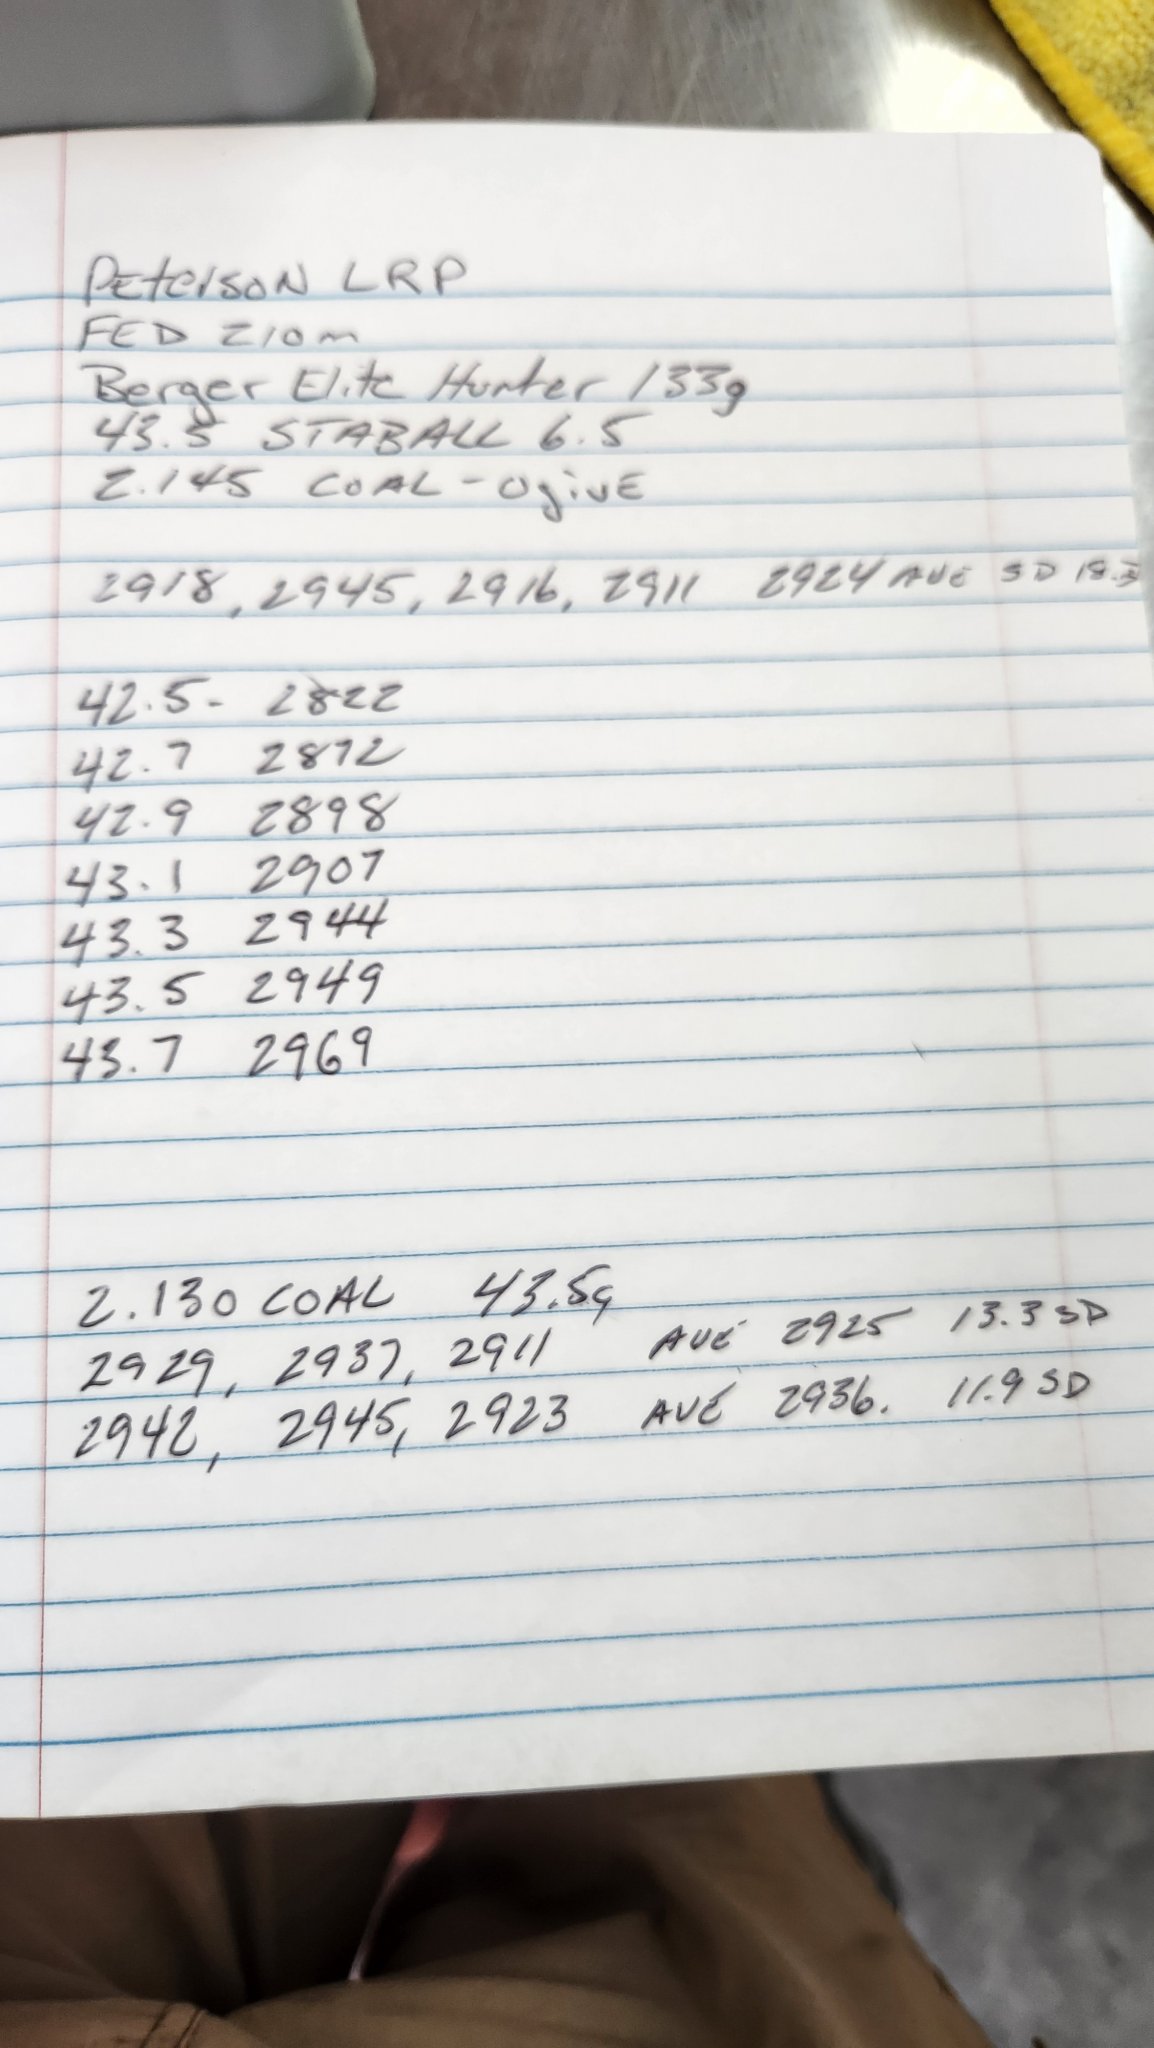 Peterson LRP
FED 210m
Berger Elite Hunter 133g
43.5 STABALL 6.5
2.145 COAL - OgivE
2918, 2945, 2916, 2911 2924 AVE SD
42.5 - 2822
42.7 2872
42.9 2898
43.1 2907
43.3 2944
43.5 2949
43.7 2969
2.130 COAL 43.5g
2929, 2937, 2911 AVE 2925 13.3 SD
2942, 2945, 2923 AVE 2936. 11.9 SD